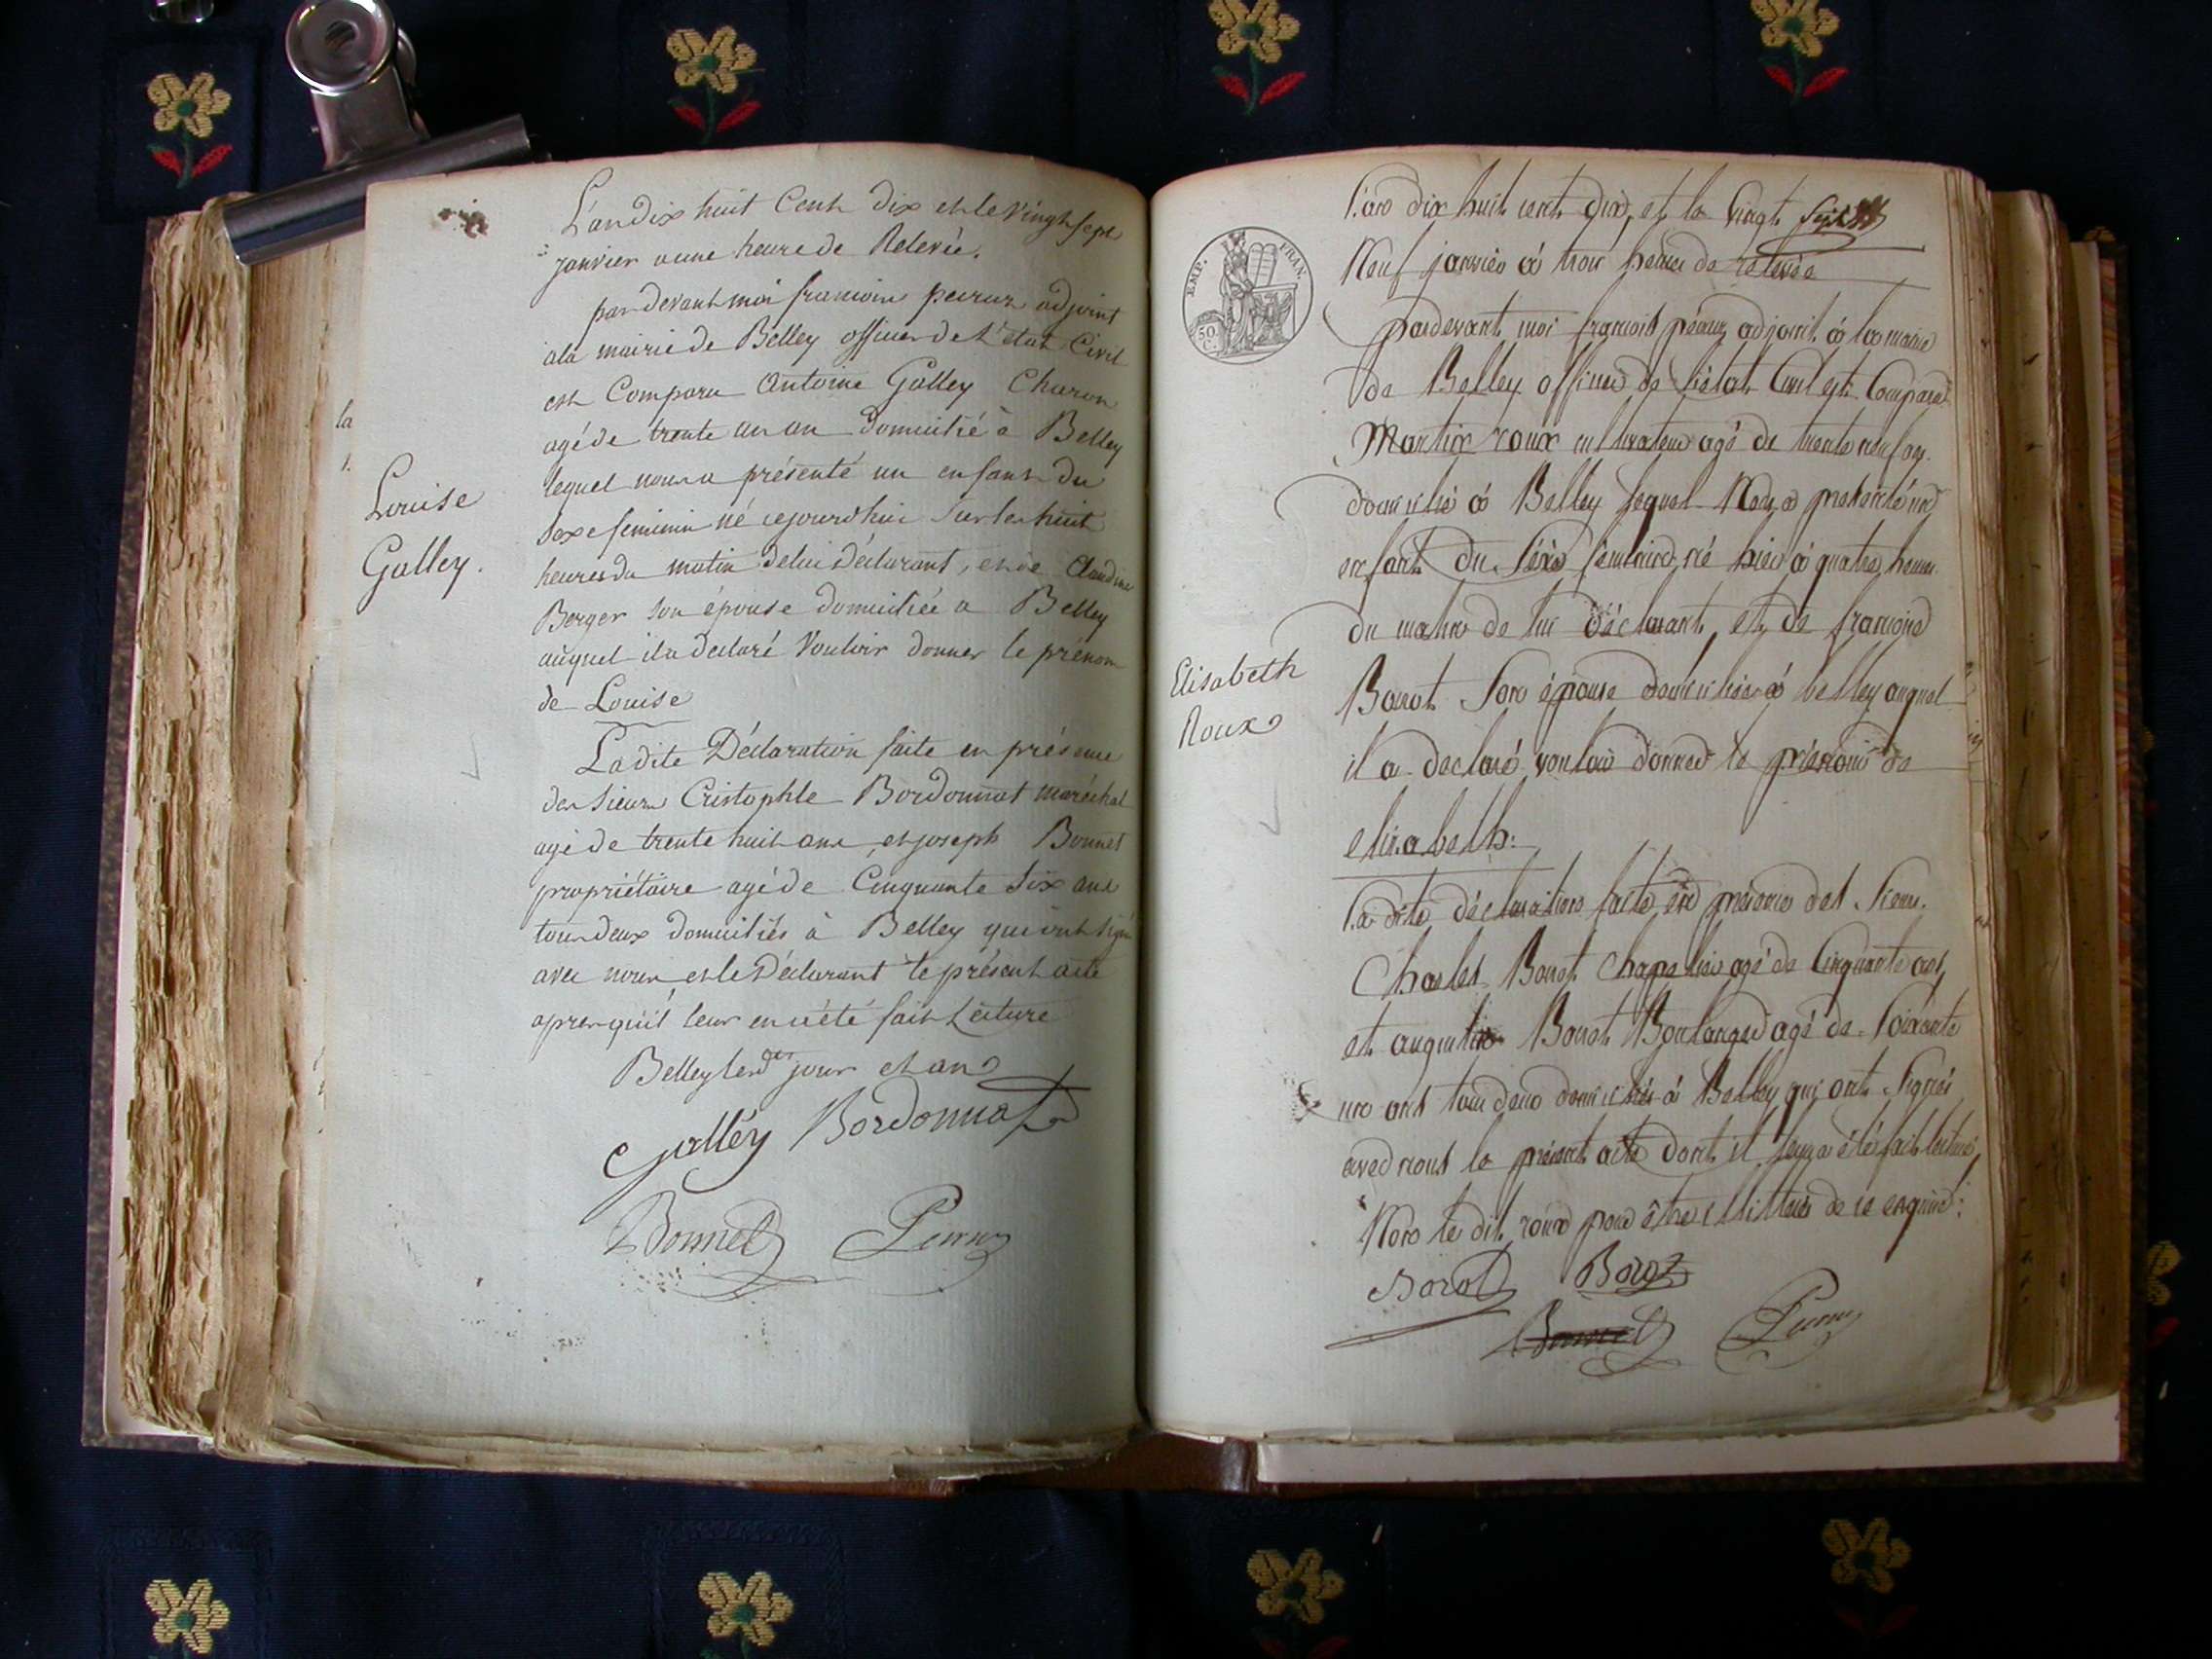 L'an dix huit Cent dix et le Vingt sept
janvier a une heure de Relevée.
par devant moi francois peiruz adjoint
a la mairie de Belley officier de L'état Civil
est Comparu Antoine Galley Charon
agé de trente un an domicilié à Belley
lequel nous a présenté un enfant du
Sexe feminin né cejourd'hui sur les huit
heures du matin de lui Déclarant, et de Claudine
Berger son épouse domiciliée a Belley
auquel il a declaré Vouloir donner le prénom
de Louise
Ladite Déclaration faite en présence
des sieurs Cristophle Bordonnat maréchal
agé de trente huit ans, et joseph Bonnet
propriétaire agé de Cinquante six ans
tous deux domiciliés à Belley qui ont signé
avec nous et le Déclarant le présent acte
apres qu'il leur en a été fait Lecture
Belley les d jour et an
Galley Bordonnat
Bonnet Peiruz
la
Louise
Galley.
L'an dix huit cent dix, et le vingt
Neuf janvier à trois heures de relevée
pardevant moi francois péiruz adjoint à la mairie
de Belley officier de l'état Civil est Comparu
Martin roux cultivateur agé de trente neuf ans
domicilié à Belley lequel Nous a présenté un
enfant du sexe feminin né hier à quatre heures
du matin de lui déclarant, et de francoise
Borot son épouse domiciliée à belley auquel
il a declaré vouloir donner le prénom de
elisabeth:
La dite déclaration faite en presence des sieurs
Charles Borot Chapelier agé de Cinquante ans,
et augustin Borot Boulanger agé de soixante
un ans tous deux domiciliés à Belley qui ont signés
avec nous le présent acte dont il leur a été fait lecture,
Non le dit roux pour être illitteré de ce enquis:
Borot Borot
Bonnet Peiruz
Elisabeth
Roux
EMP. FRAN.
50
C.